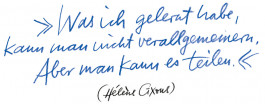 »Was ich gelernt habe,
kann man nicht verallgemeinern.
Aber man kann es teilen.«
(Hélène Cixous)